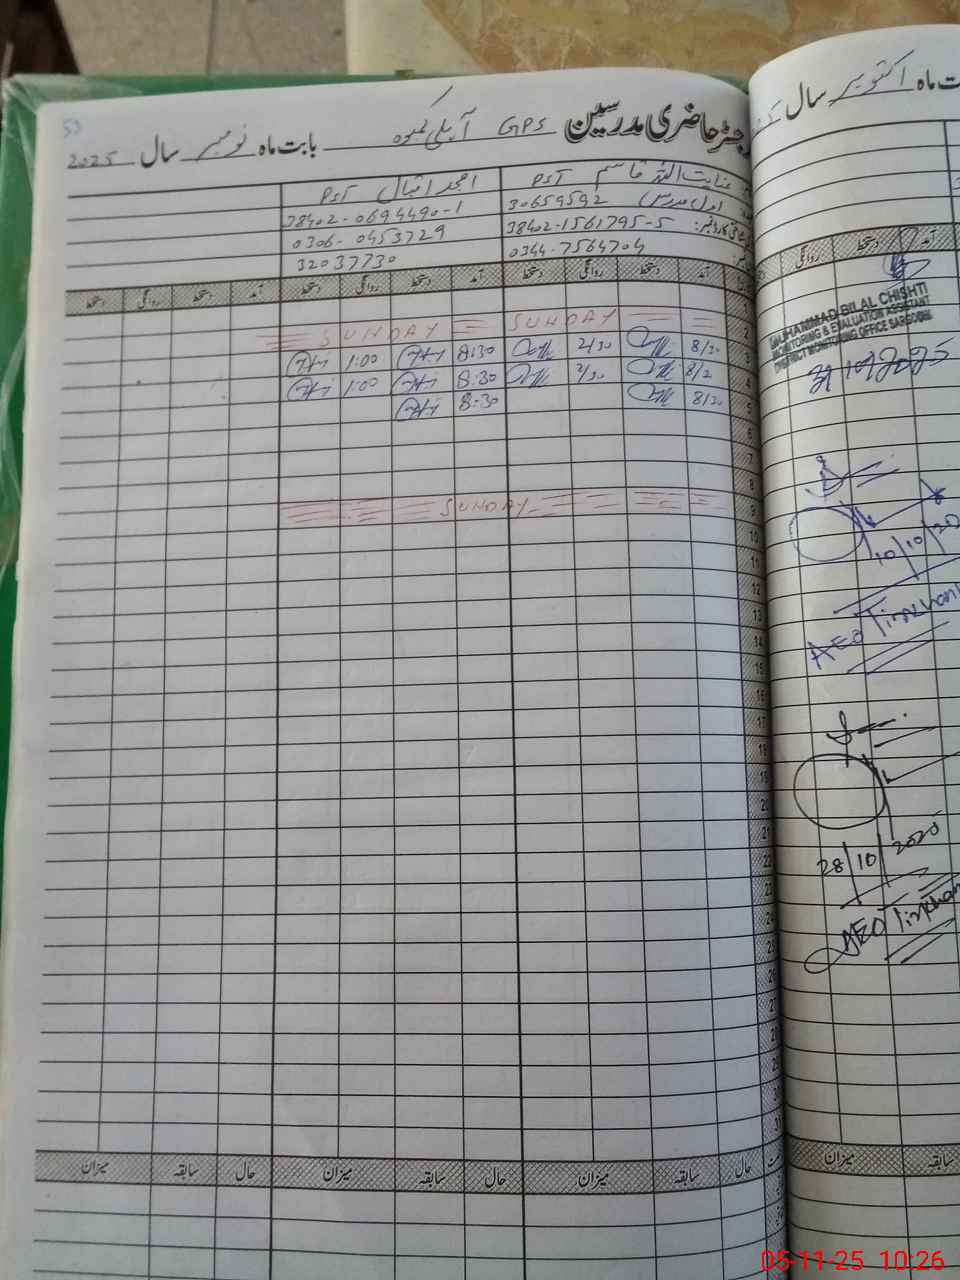 رجسٹر حاضری مدرسین GPS بابت ماہ نومبر سال 2025
53
عنایت اللہ قاسم PST
امجد اقبال PST
30659592
38402-0694490-1
38402-1561795-5
0306-0453729
0344-7564704
32037730
آمد دستخط روانگی دستخط آمد دستخط روانگی دستخط آمد دستخط روانگی دستخط
2 SUNDAY SUNDAY
3 8/30 2/30 8:30 1:00
4 8/2 2/30 8:30 1:00
5 8/30 8:30
6
7
8
9 SUNDAY
10
11
12
13
14
15
16
17
18
19
20
21
22
23
24
25
26
27
28
حال سابقہ میزان حال سابقہ میزان حال سابقہ میزان
ماہ اکتوبر سال
آمد دستخط روانگی
MUHAMMAD BILAL CHISHTI
MONITORING & EVALUATION ASSISTANT
DISTRICT MONITORING OFFICE SARGODHA
10/10/20
AEO
28/10/2025
AEO
سابقہ میزان
05-11-25 10:26